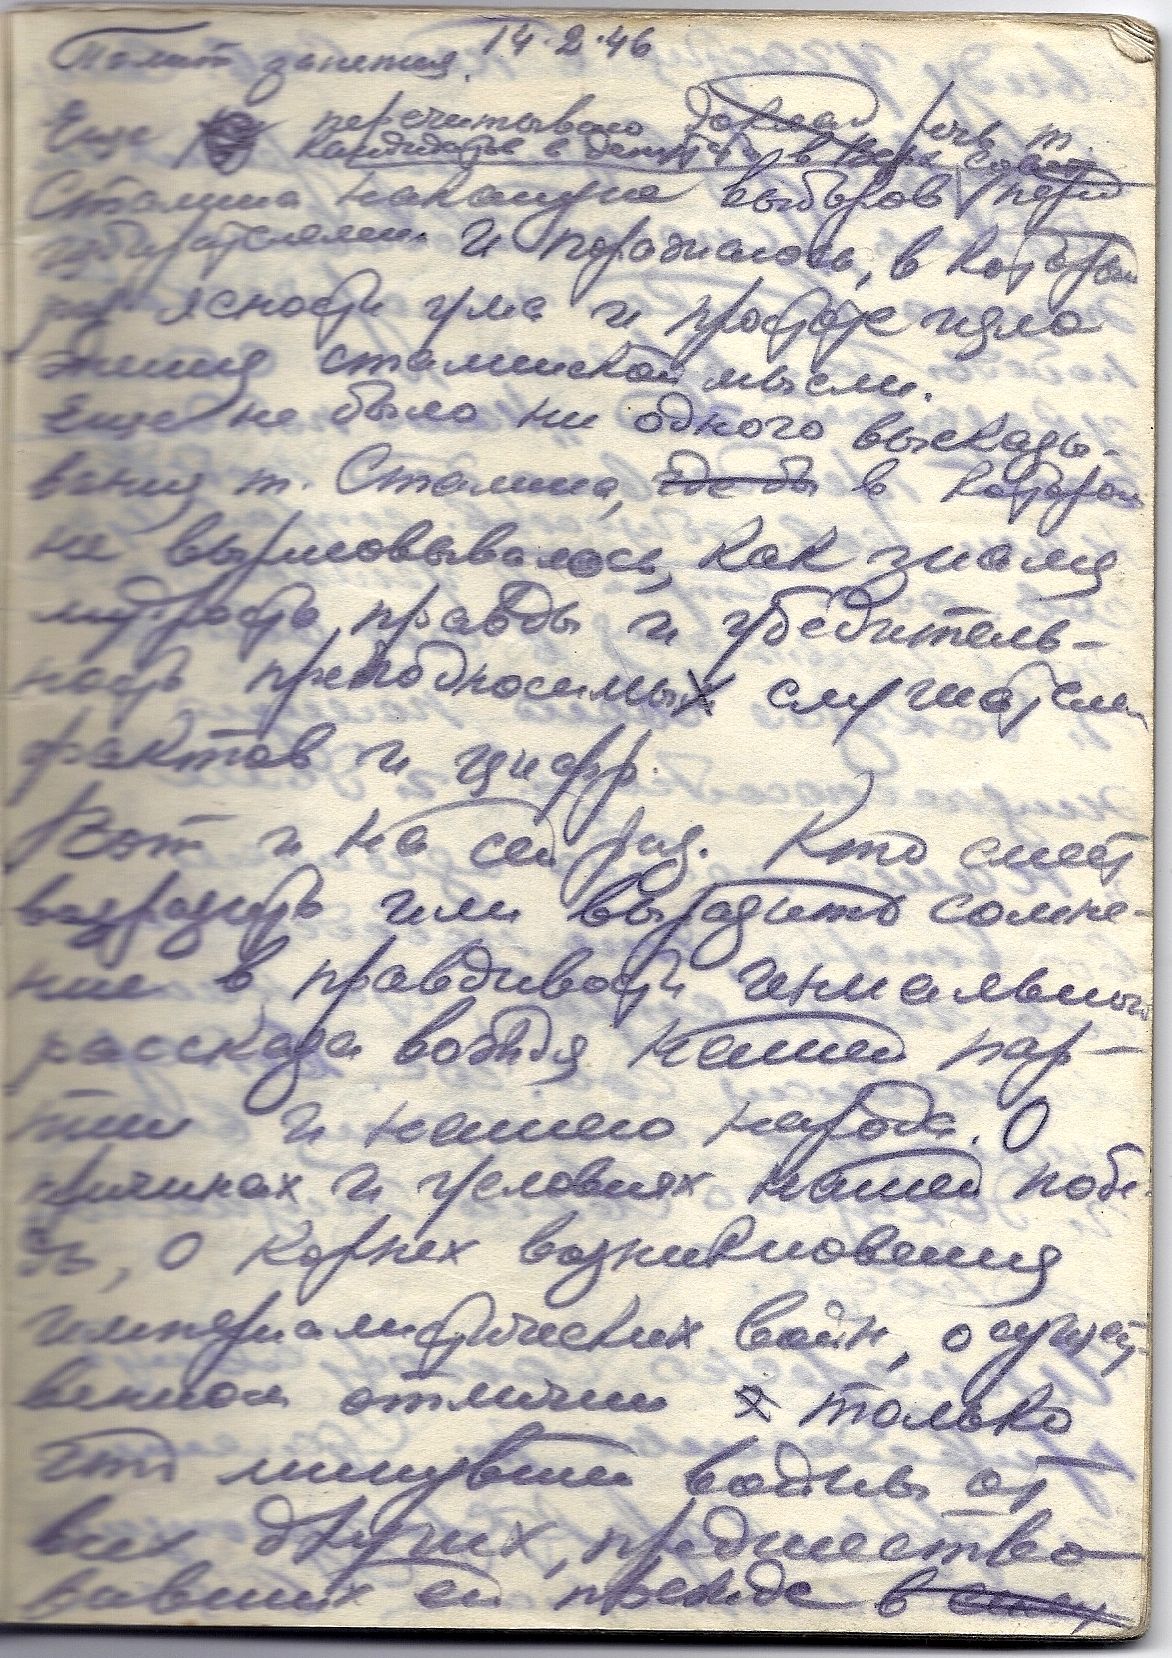 14.2.46
Полит занятия.
Еще перечитываю доклад речь т.
кандидатов в депутаты в Верх Совет
Сталина накануне выборов перед
избирателями и поражаюсь, в который
раз ясности ума и простоте изло
жения сталинской мысли.
Еще не было ни одного высказы-
вания т. Сталина, где бы в котором
не вырисовывалось, как знамя
мудрость, правды и убедитель-
ность преподносимых слушателям
фактов и цифр.
Вот и на сей раз. Кто смеет
возразить или выразить сомне-
ние в правдивости гениального
рассказа вождя нашей пар-
тии и нашего народа. О
причинах и условиях нашей побе-
ды, о корнях возникновения
империалистических войн, о сущест-
венном отличии только
что минувшей войны от
всех других, предшество-
вавших ей прежде в